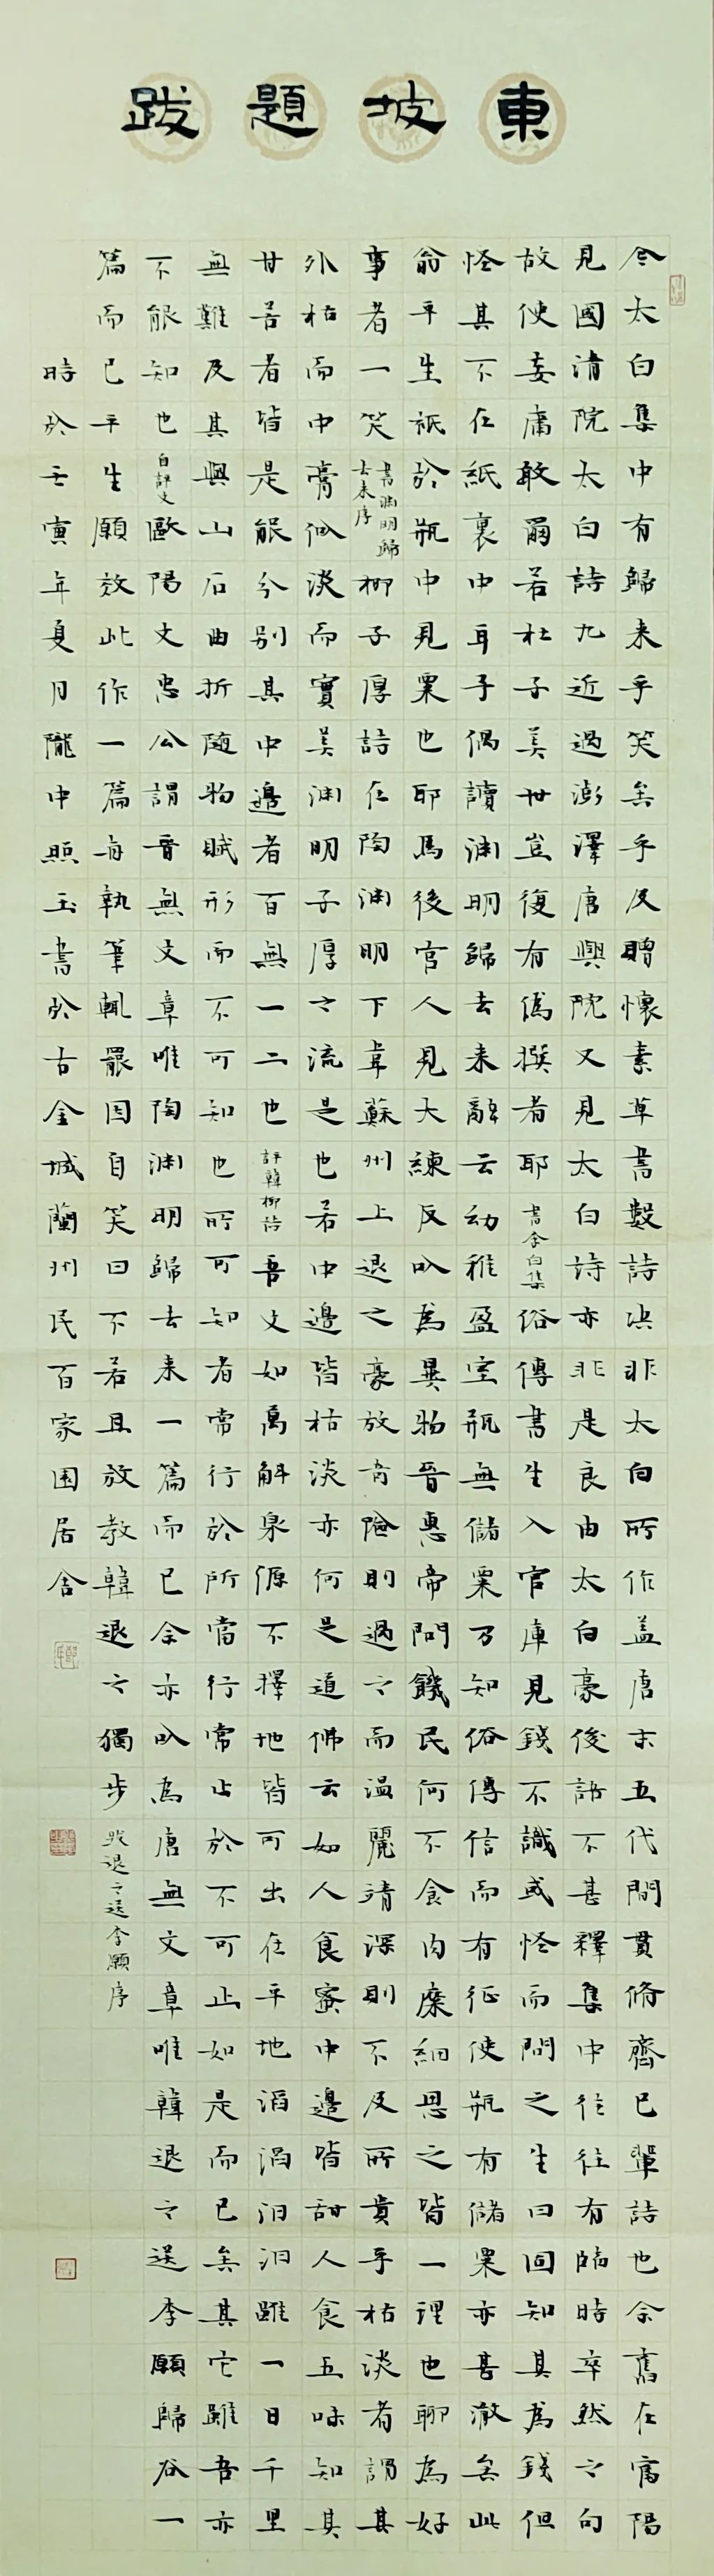 東坡題跋
今太白集中有歸来乎笑矣乎及贈懷素草書數詩决非太白所作盖唐末五代間貫脩齊已輩詩也余舊在富陽
見國清院太白詩九近過澎澤唐興院又見太白詩亦非是良由太白豪俊語不甚釋集中往往有臨時卒然之句
故使妄庸敢爾若杜子美世豈復有偽撰者耶書李白集俗傳書生入官庫見錢不識或怪而問之生曰固知其為錢但
怪其不在紙裏中耳子偶讀渊明歸去来辭云幼稚盈室瓶無儲粟乃知俗傳信而有征使瓶有儲粟亦甚澈矣此
翁平生祇於瓶中見粟也耶馬後宫人見大練反以為異物晉惠帝問饑民何不食肉糜細思之皆一理也聊為好
事者一笑書渊明歸去来序柳子厚詩在陶渊明下韋蘇州上退之豪放奇險則過之而温麗靖深則不及所貴乎枯淡者謂其
外枯而中膏似淡而實美渊明子厚之流是也若中邊皆枯淡亦何足道佛云如人食蜜中邊皆甜人食五味知其
甘苦者皆是能分别其中邉者百無一二也評韓柳詩吾文如萬斛泉源不擇地皆可出在平地滔滔汩汩雖一日千里
無難及其與山石曲折随物賦形而不可知也所可知者常行於所當行常止於不可止如是而已矣其它雖吾亦
不能知也自評文歐陽文忠公謂晉無文章唯陶渊明歸去来一篇而已余亦以為唐無文章唯韓退之送李願歸谷一
篇而已平生願效此作一篇每執筆輒罷因自笑曰不若且放教韓退之獨步跋退之送李願序
時於壬寅年夏月隴中照玉書於古金城蘭州民百家園居舍